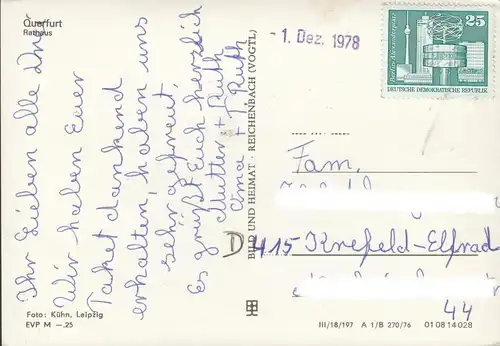 Querfurt
Rathaus
- 1. Dez. 1978
25
Berlin-Alexanderplatz
DEUTSCHE DEMOKRATISCHE REPUBLIK
Ihr Lieben alle drei
Wir haben Euer
Paket dankend
erhalten, haben uns
sehr gefreut,
Es grüßt Euch herzlich
Mutter + Ruth
Oma + T. Ruth
BILD UND HEIMAT · REICHENBACH (VOGTL)
Fam.
D 415 Krefeld-Elfrad
44
Foto: Kühn, Leipzig
EVP M —.25
III/18/197 A 1/B 270/76 01 08 14 028